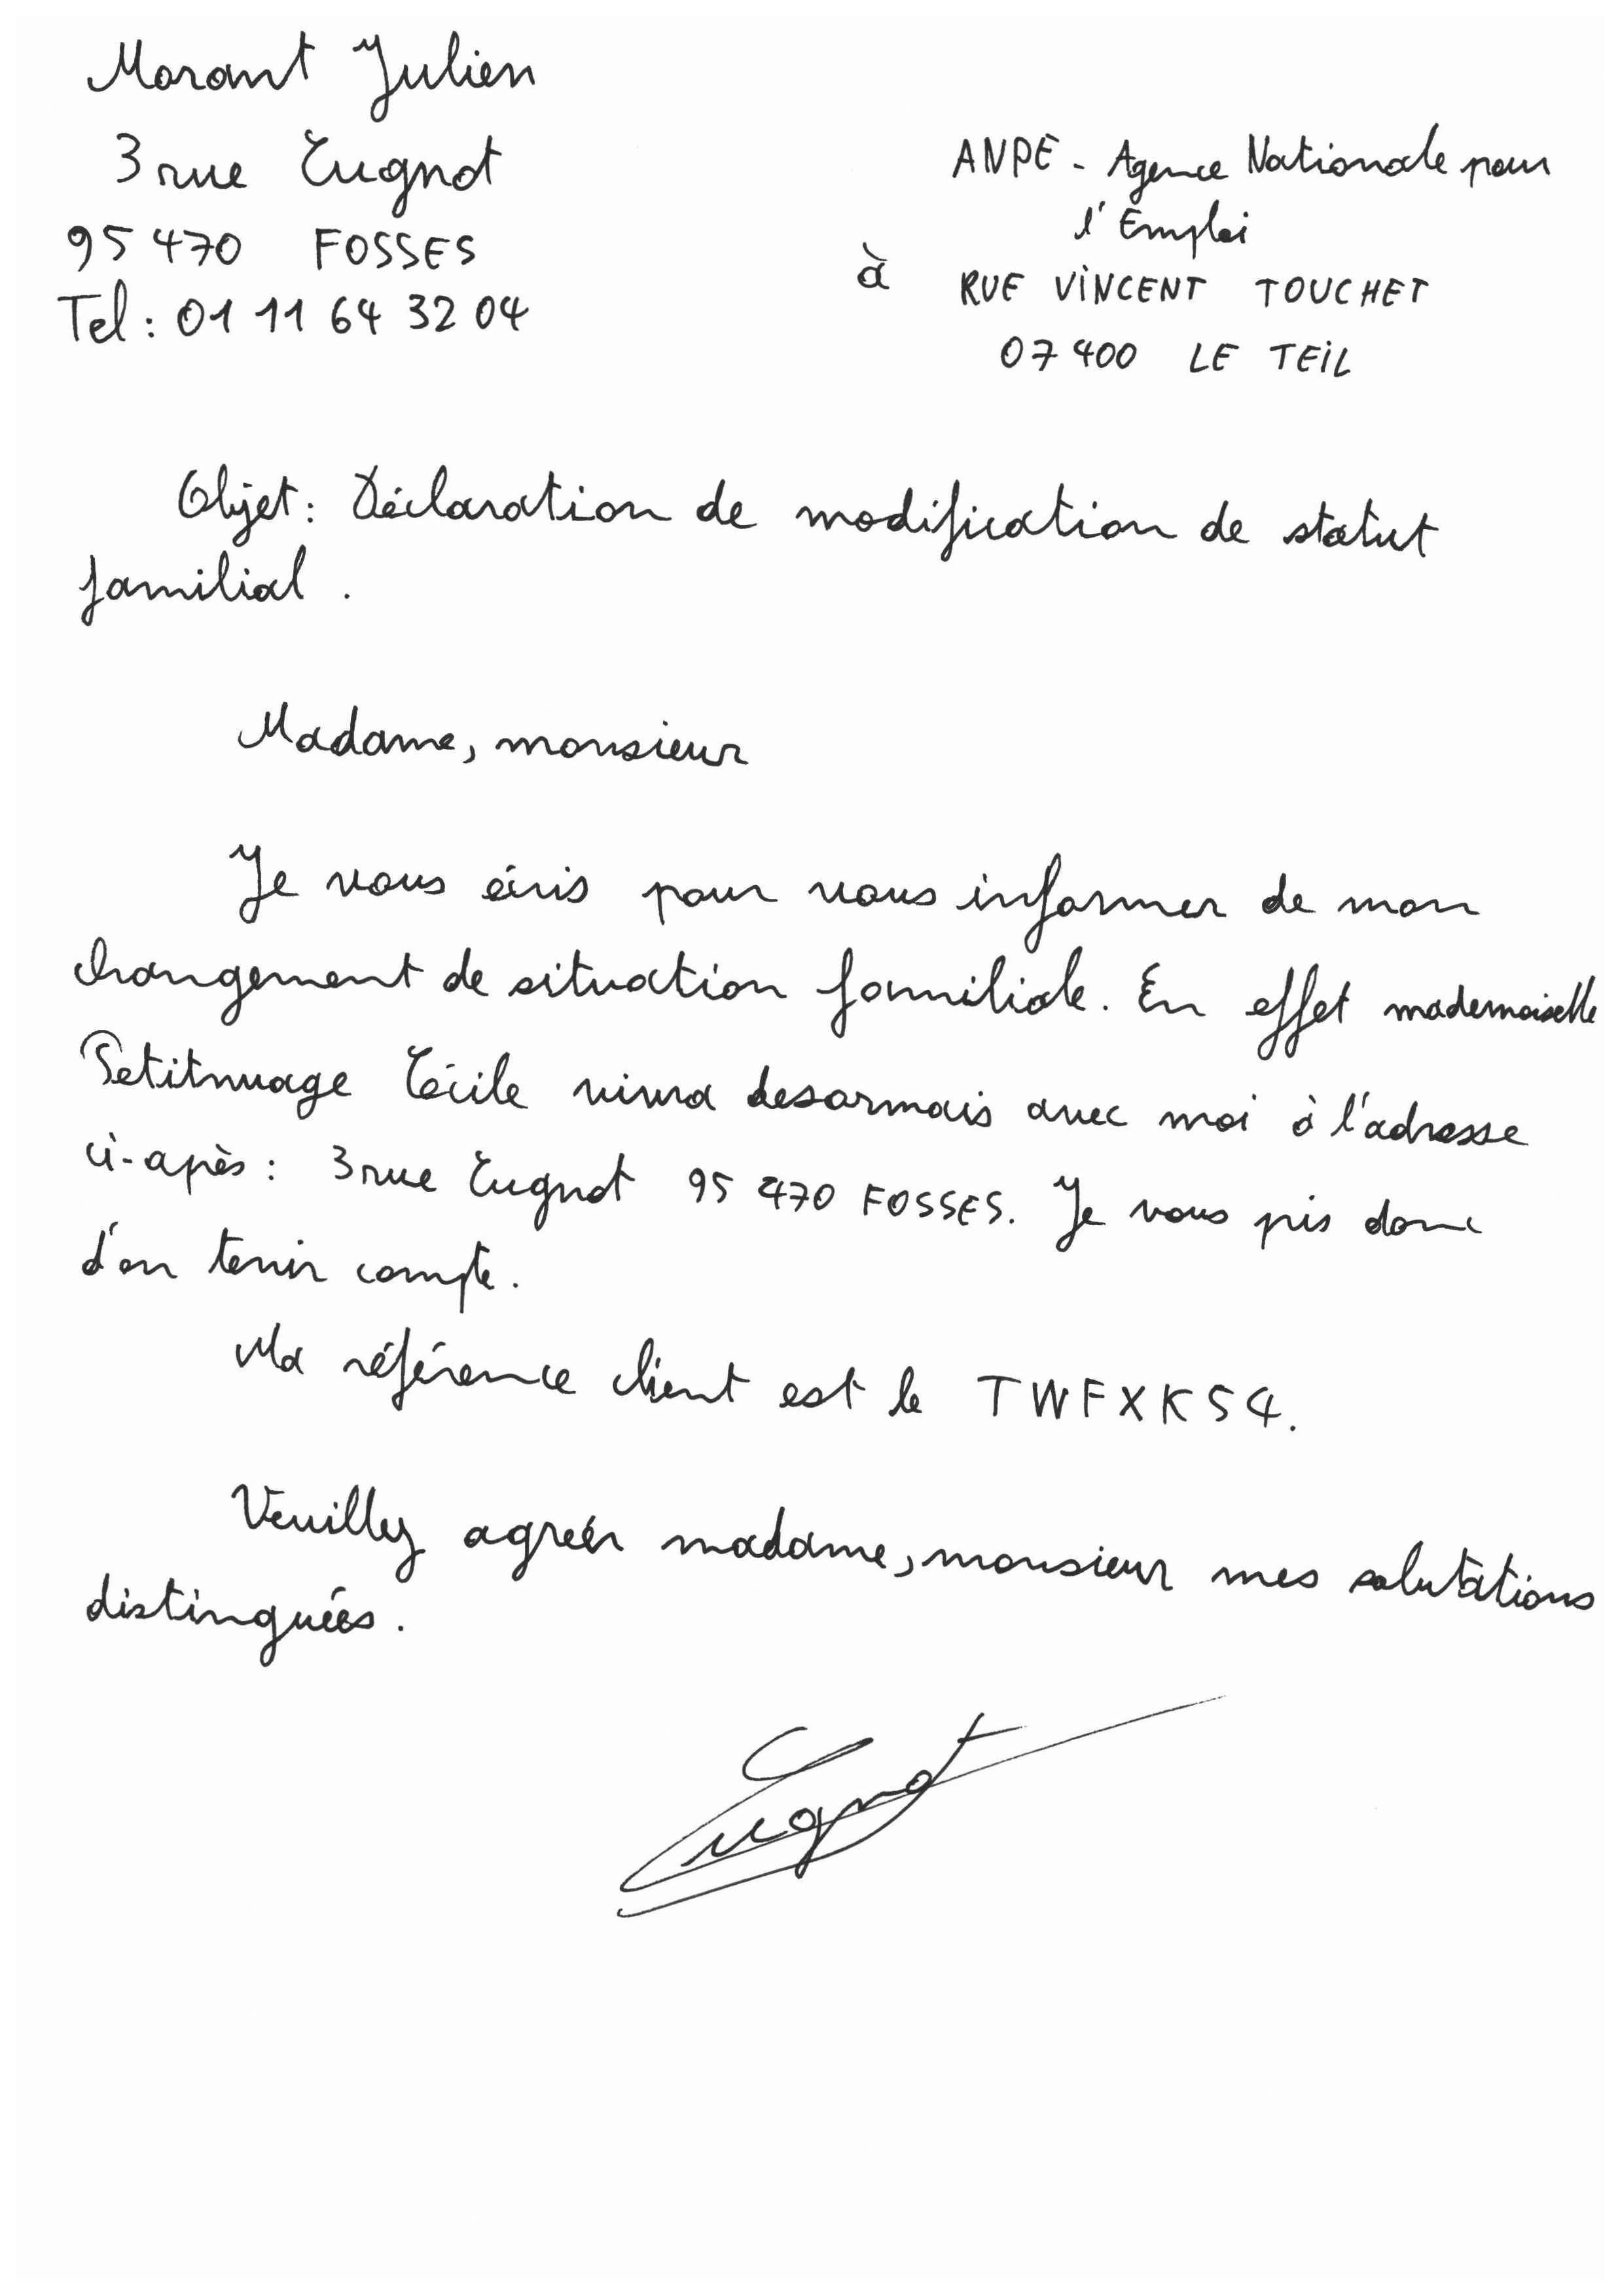 Morant Julien
3 rue Cugnot
95 470 FOSSES
Tel : 01 11 64 32 04
ANPE - Agence Nationale pour
l'Emploi
à RUE VINCENT TOUCHET
07 400 LE TEIL
Objet : Déclaration de modification de statut
familial .
Madame, monsieur
Je vous écris pour vous informer de mon
changement de situation familiale. En effet mademoiselle
Petitnuage Cécile vivra desormais avec moi à l'adresse
ci-après : 3 rue Cugnot 95 470 FOSSES. Je vous pris donc
d'en tenir compte.
Ma référence client est le TWFXK54.
Veuillez agréer madame, monsieur mes salutations
distinguées.
Cugnot